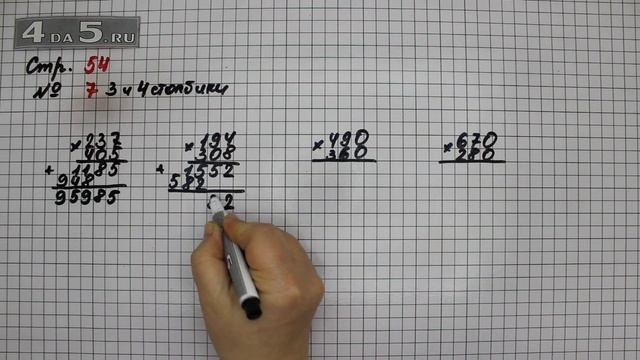 4 DA 5.RU
Стр. 54
№ 7 3 и 4 столбики
× 237
405
+ 1185
948
95985
× 194
308
+ 1552
582
52
× 490
360
× 670
280